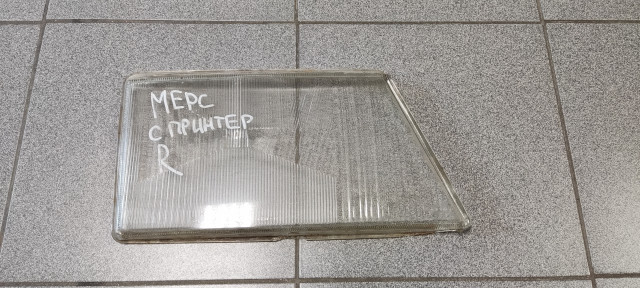 МЕРС
СПРИНТЕР
R